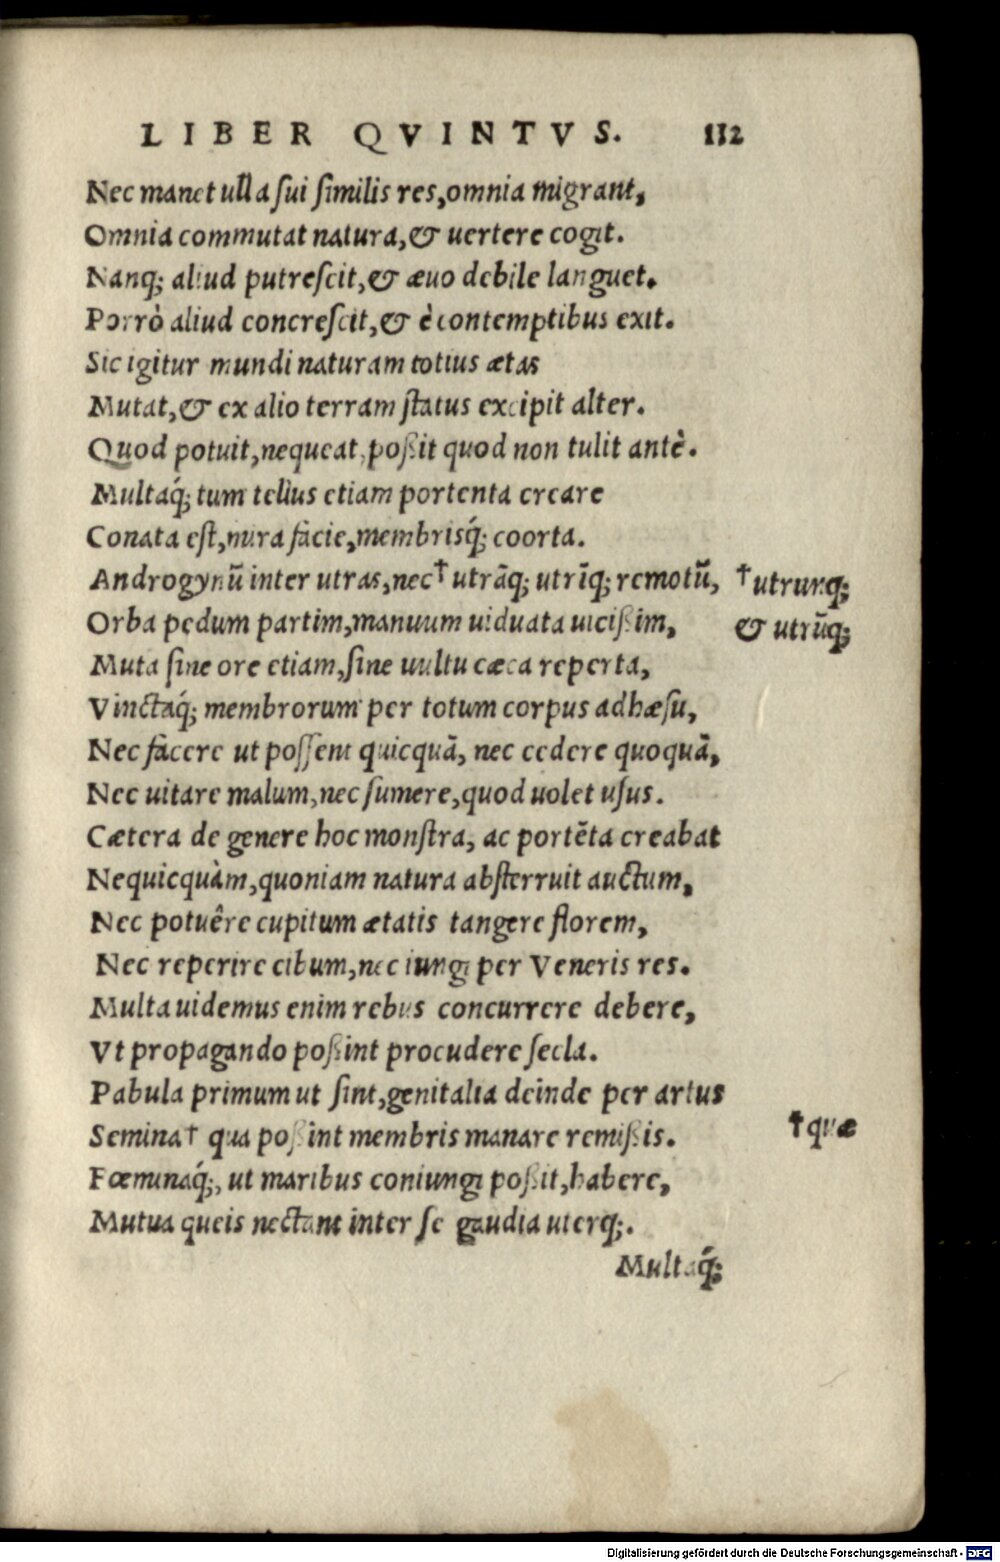 LIBER QVINTVS. 112
Nec manet ulla sui similis res, omnia migrant,
Omnia commutat natura, & uertere cogit.
Nanq; aliud putrescit, & æuo debile languet.
Porrò aliud concrescit, & è contemptibus exit.
Sic igitur mundi naturam totius ætas
Mutat, & ex alio terram status excipit alter.
Quod potuit, nequeat, poßit quod non tulit antè.
Multaq́; tum tellus etiam portenta creare
Conata est, mira facie, membrisq́; coorta.
Androgynũ inter utras, nec † utrãq; utrĩq; remotũ, † utrunq;
Orba pedum partim, manuum uiduata uicißim, & utrũq;
Muta sine ore etiam, sine uultu cæca reperta,
Vinctaq́; membrorum per totum corpus adhæsu,
Nec facere ut possent quicquã, nec cedere quoquã,
Nec uitare malum, nec sumere, quod uolet usus.
Cætera de genere hoc monstra, ac portẽta creabat
Nequicquàm, quoniam natura absterruit auctum,
Nec potuêre cupitum ætatis tangere florem,
Nec reperire cibum, nec iungi per Veneris res.
Multa uidemus enim rebus concurrere debere,
Vt propagando poßint procudere secla.
Pabula primum ut sint, genitalia deinde per artus
Semina † qua poßint membris manare remißis. † quæ
Fœminaq́;, ut maribus coniungi poßit, habere,
Mutua queis nectant inter se gaudia uterq;.
Multaq́;
Digitalisierung gefördert durch die Deutsche Forschungsgemeinschaft - DFG